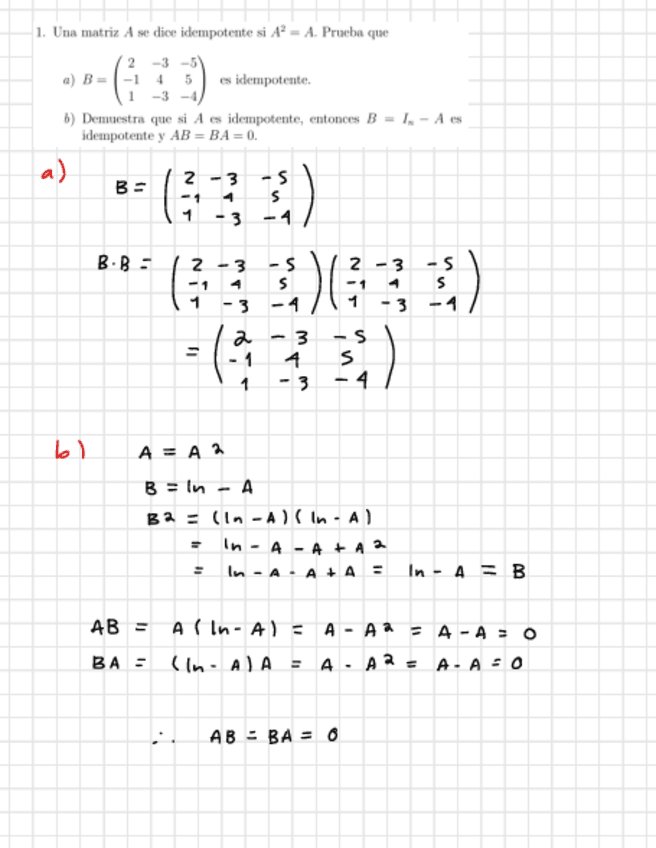 1. Una matriz A se dice idempotente si A² = A. Prueba que
2 −3 −5
a) B = −1 4 5 es idempotente.
1 −3 −4
b) Demuestra que si A es idempotente, entonces B = Iₙ − A es
idempotente y AB = BA = 0.
a)
2 −3 −5
B = −1 4 5
1 −3 −4
2 −3 −5 2 −3 −5
B·B = −1 4 5 −1 4 5
1 −3 −4 1 −3 −4
2 −3 −5
= −1 4 5
1 −3 −4
b) A = A2
B = In − A
B2 = (In − A)(In − A)
= In − A − A + A2
= In − A − A + A = In − A = B
AB = A(In − A) = A − A2 = A − A = 0
BA = (In − A)A = A − A2 = A − A = 0
∴ AB = BA = 0